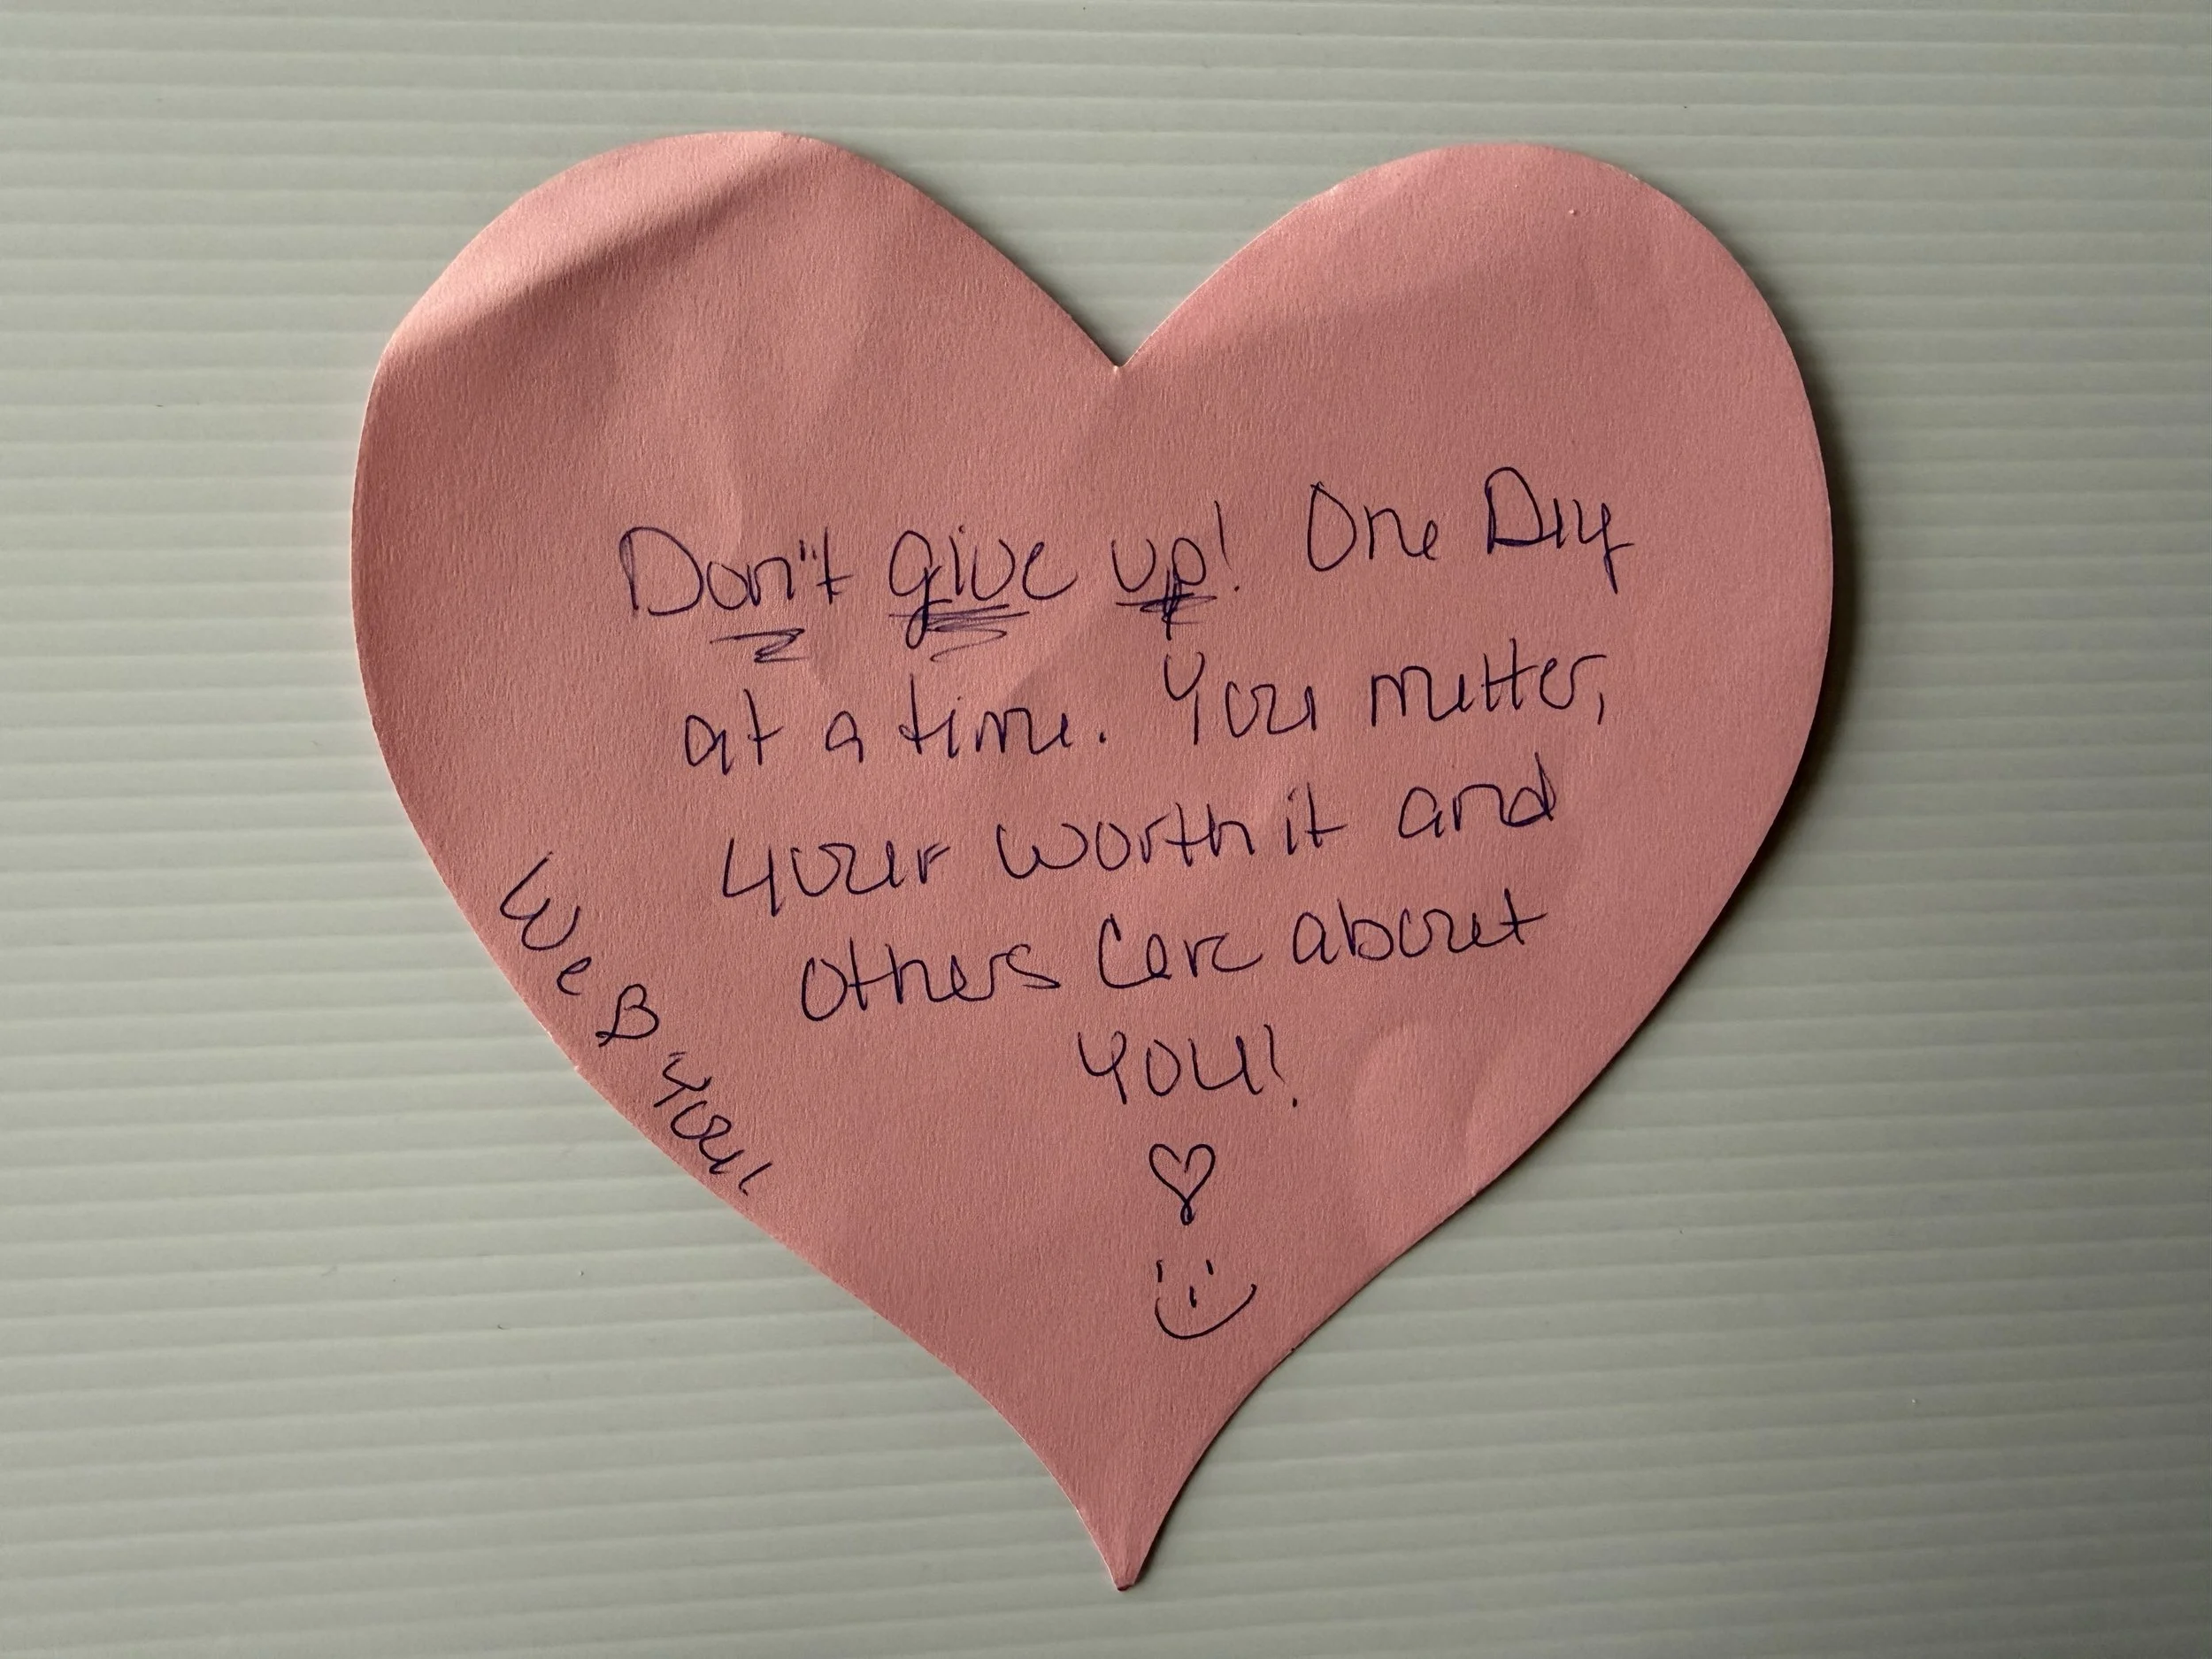 Don't give up! One Day
at a time. You matter,
your worth it and
others Care about
you!
We B you!